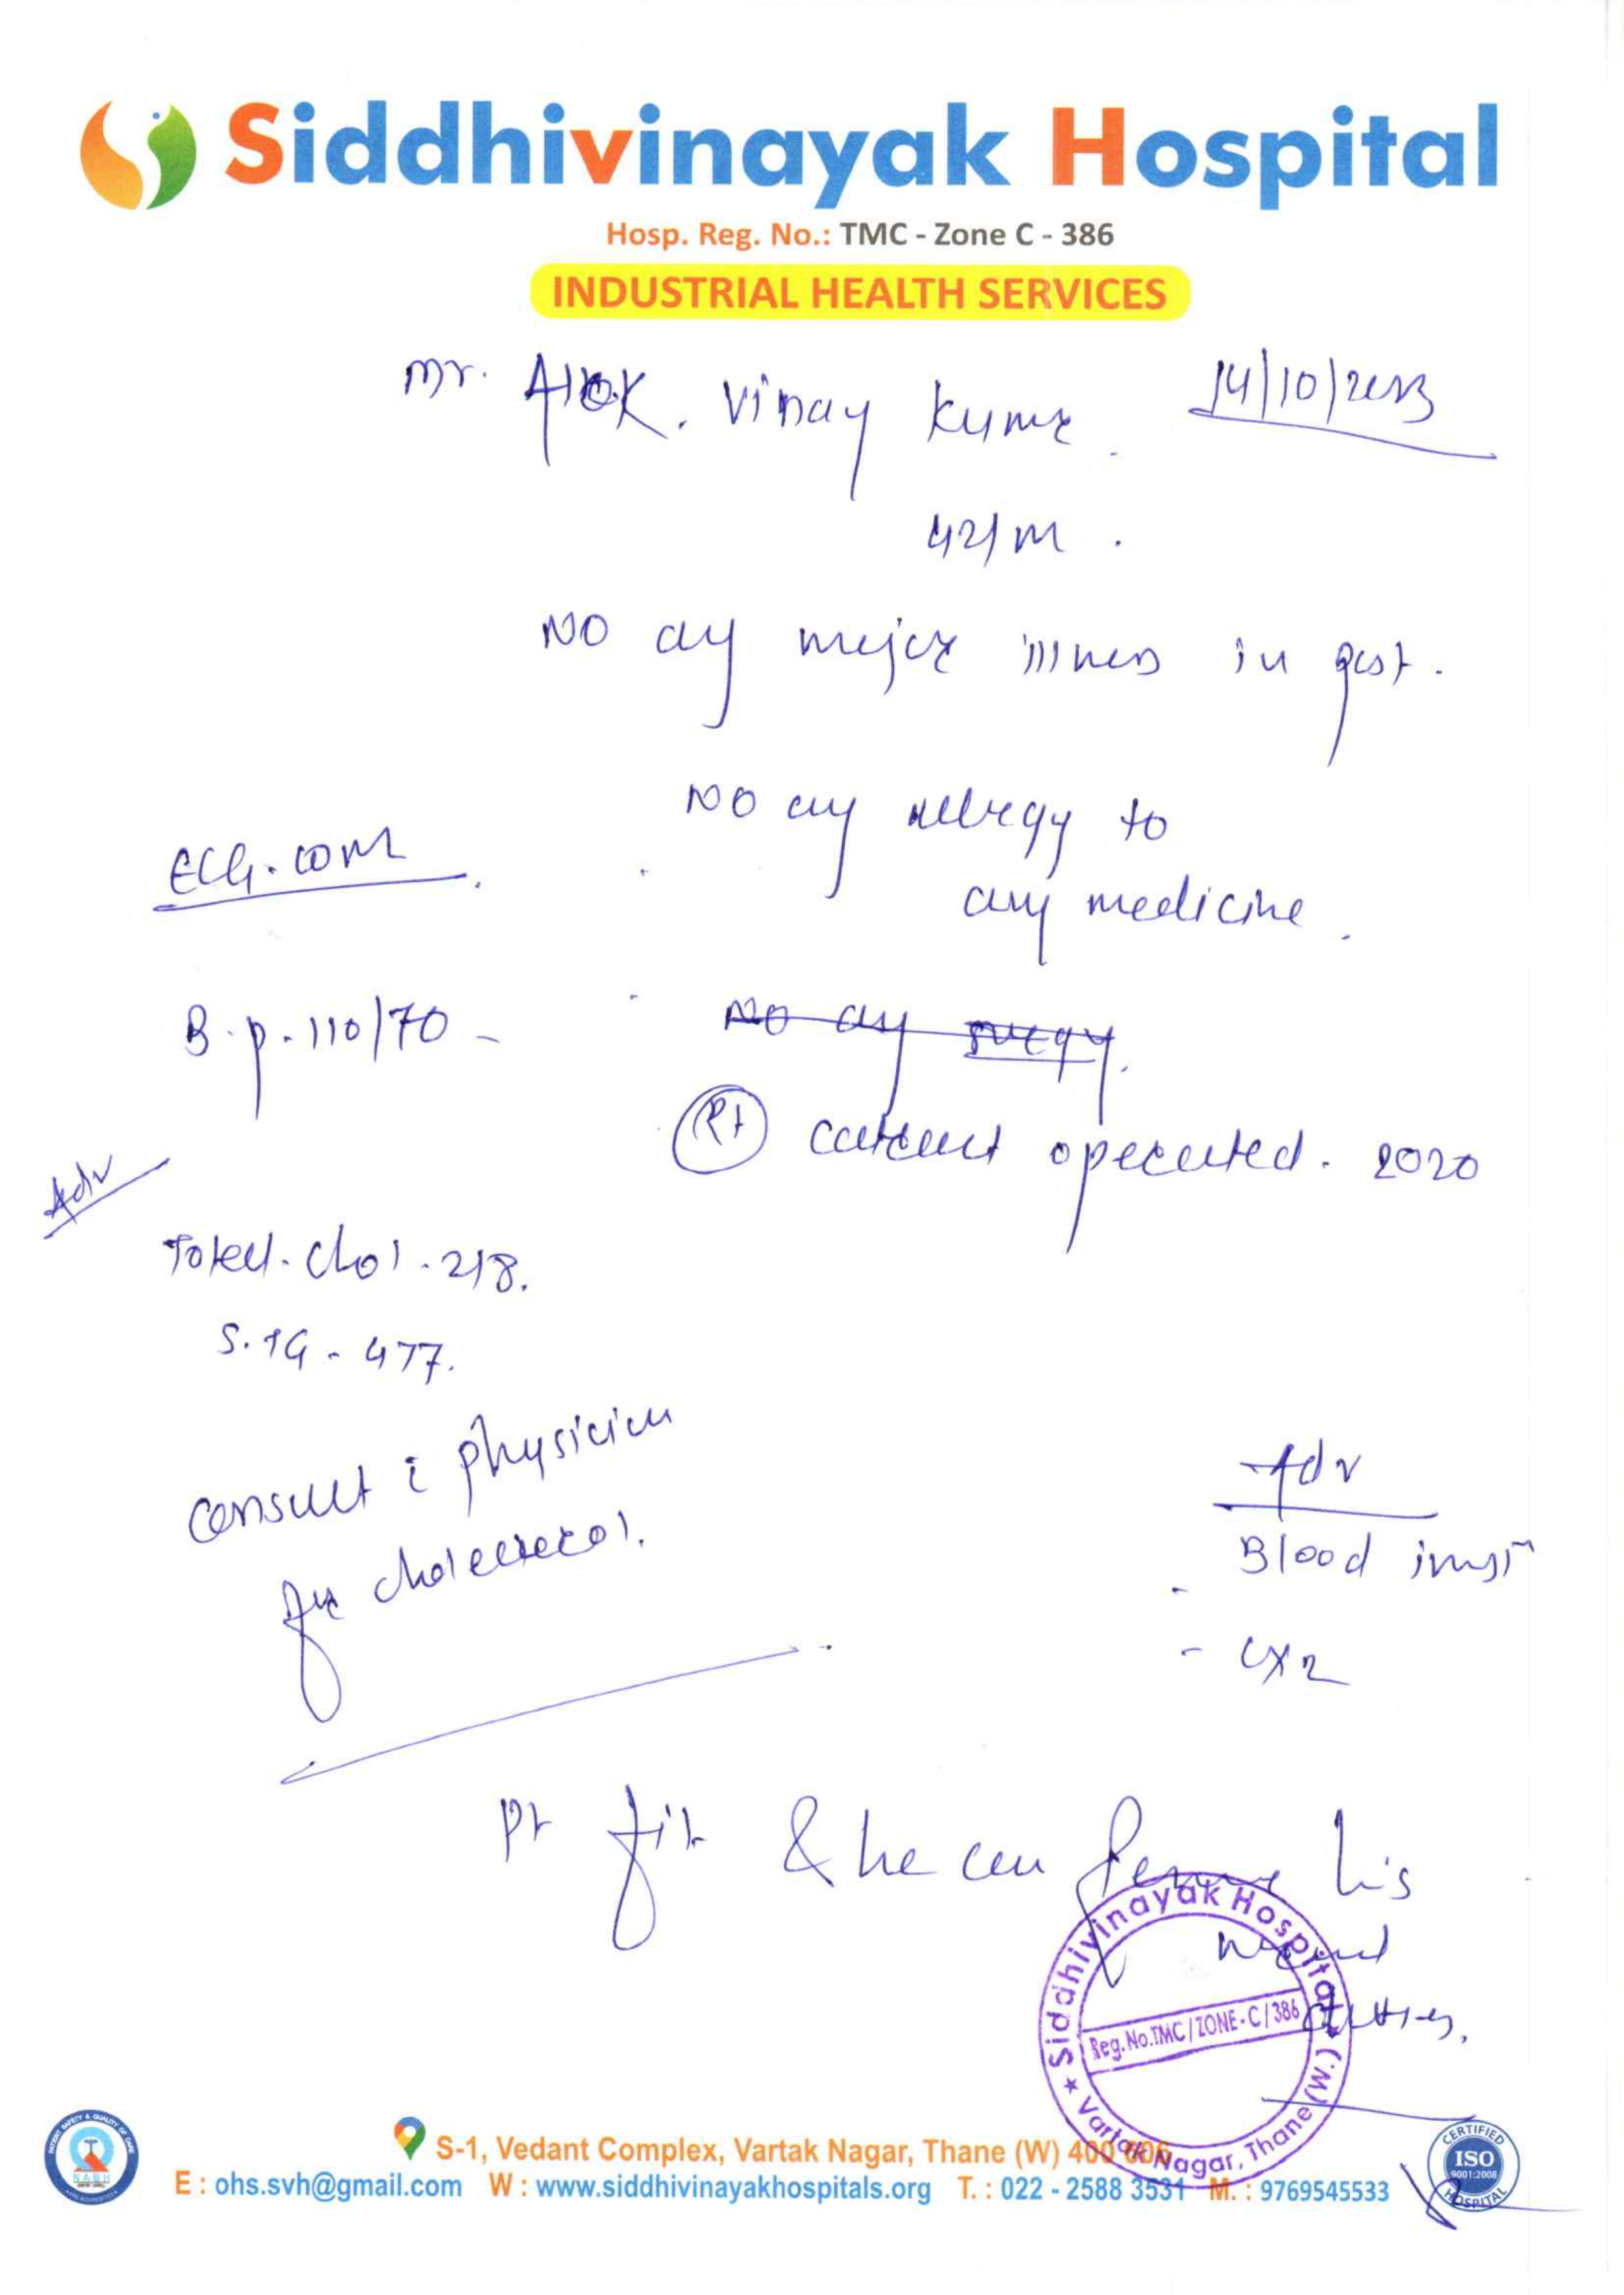 Siddhivinayak Hospital
Hosp. Reg. No.: TMC - Zone C - 386
INDUSTRIAL HEALTH SERVICES
Mr. Alok. Vinay Kumar. 14/10/2023
42/M.
NO any major illness in past.
NO any allergy to
any medicine.
ECG.
B.p. 110/70 -
No any surgy.
Rt cataract operated. 2020
Adv
Total. Chol. 218.
S. TG - 477.
consult c physician
for cholesterol.
Adv
- Blood invsn
- CXR
pt fit & he can his
normal
duties.
Siddhivinayak Hospital
Reg.No.TMC/ZONE-C/386
★ Vartak Nagar, Thane (W.)
S-1, Vedant Complex, Vartak Nagar, Thane (W) 400 606
E : ohs.svh@gmail.com W : www.siddhivinayakhospitals.org T. : 022 - 2588 3531 M. : 9769545533
PATIENT SAFETY & QUALITY OF CARE
NABH
CERTIFIED
ISO
9001:2008
HOSPITAL